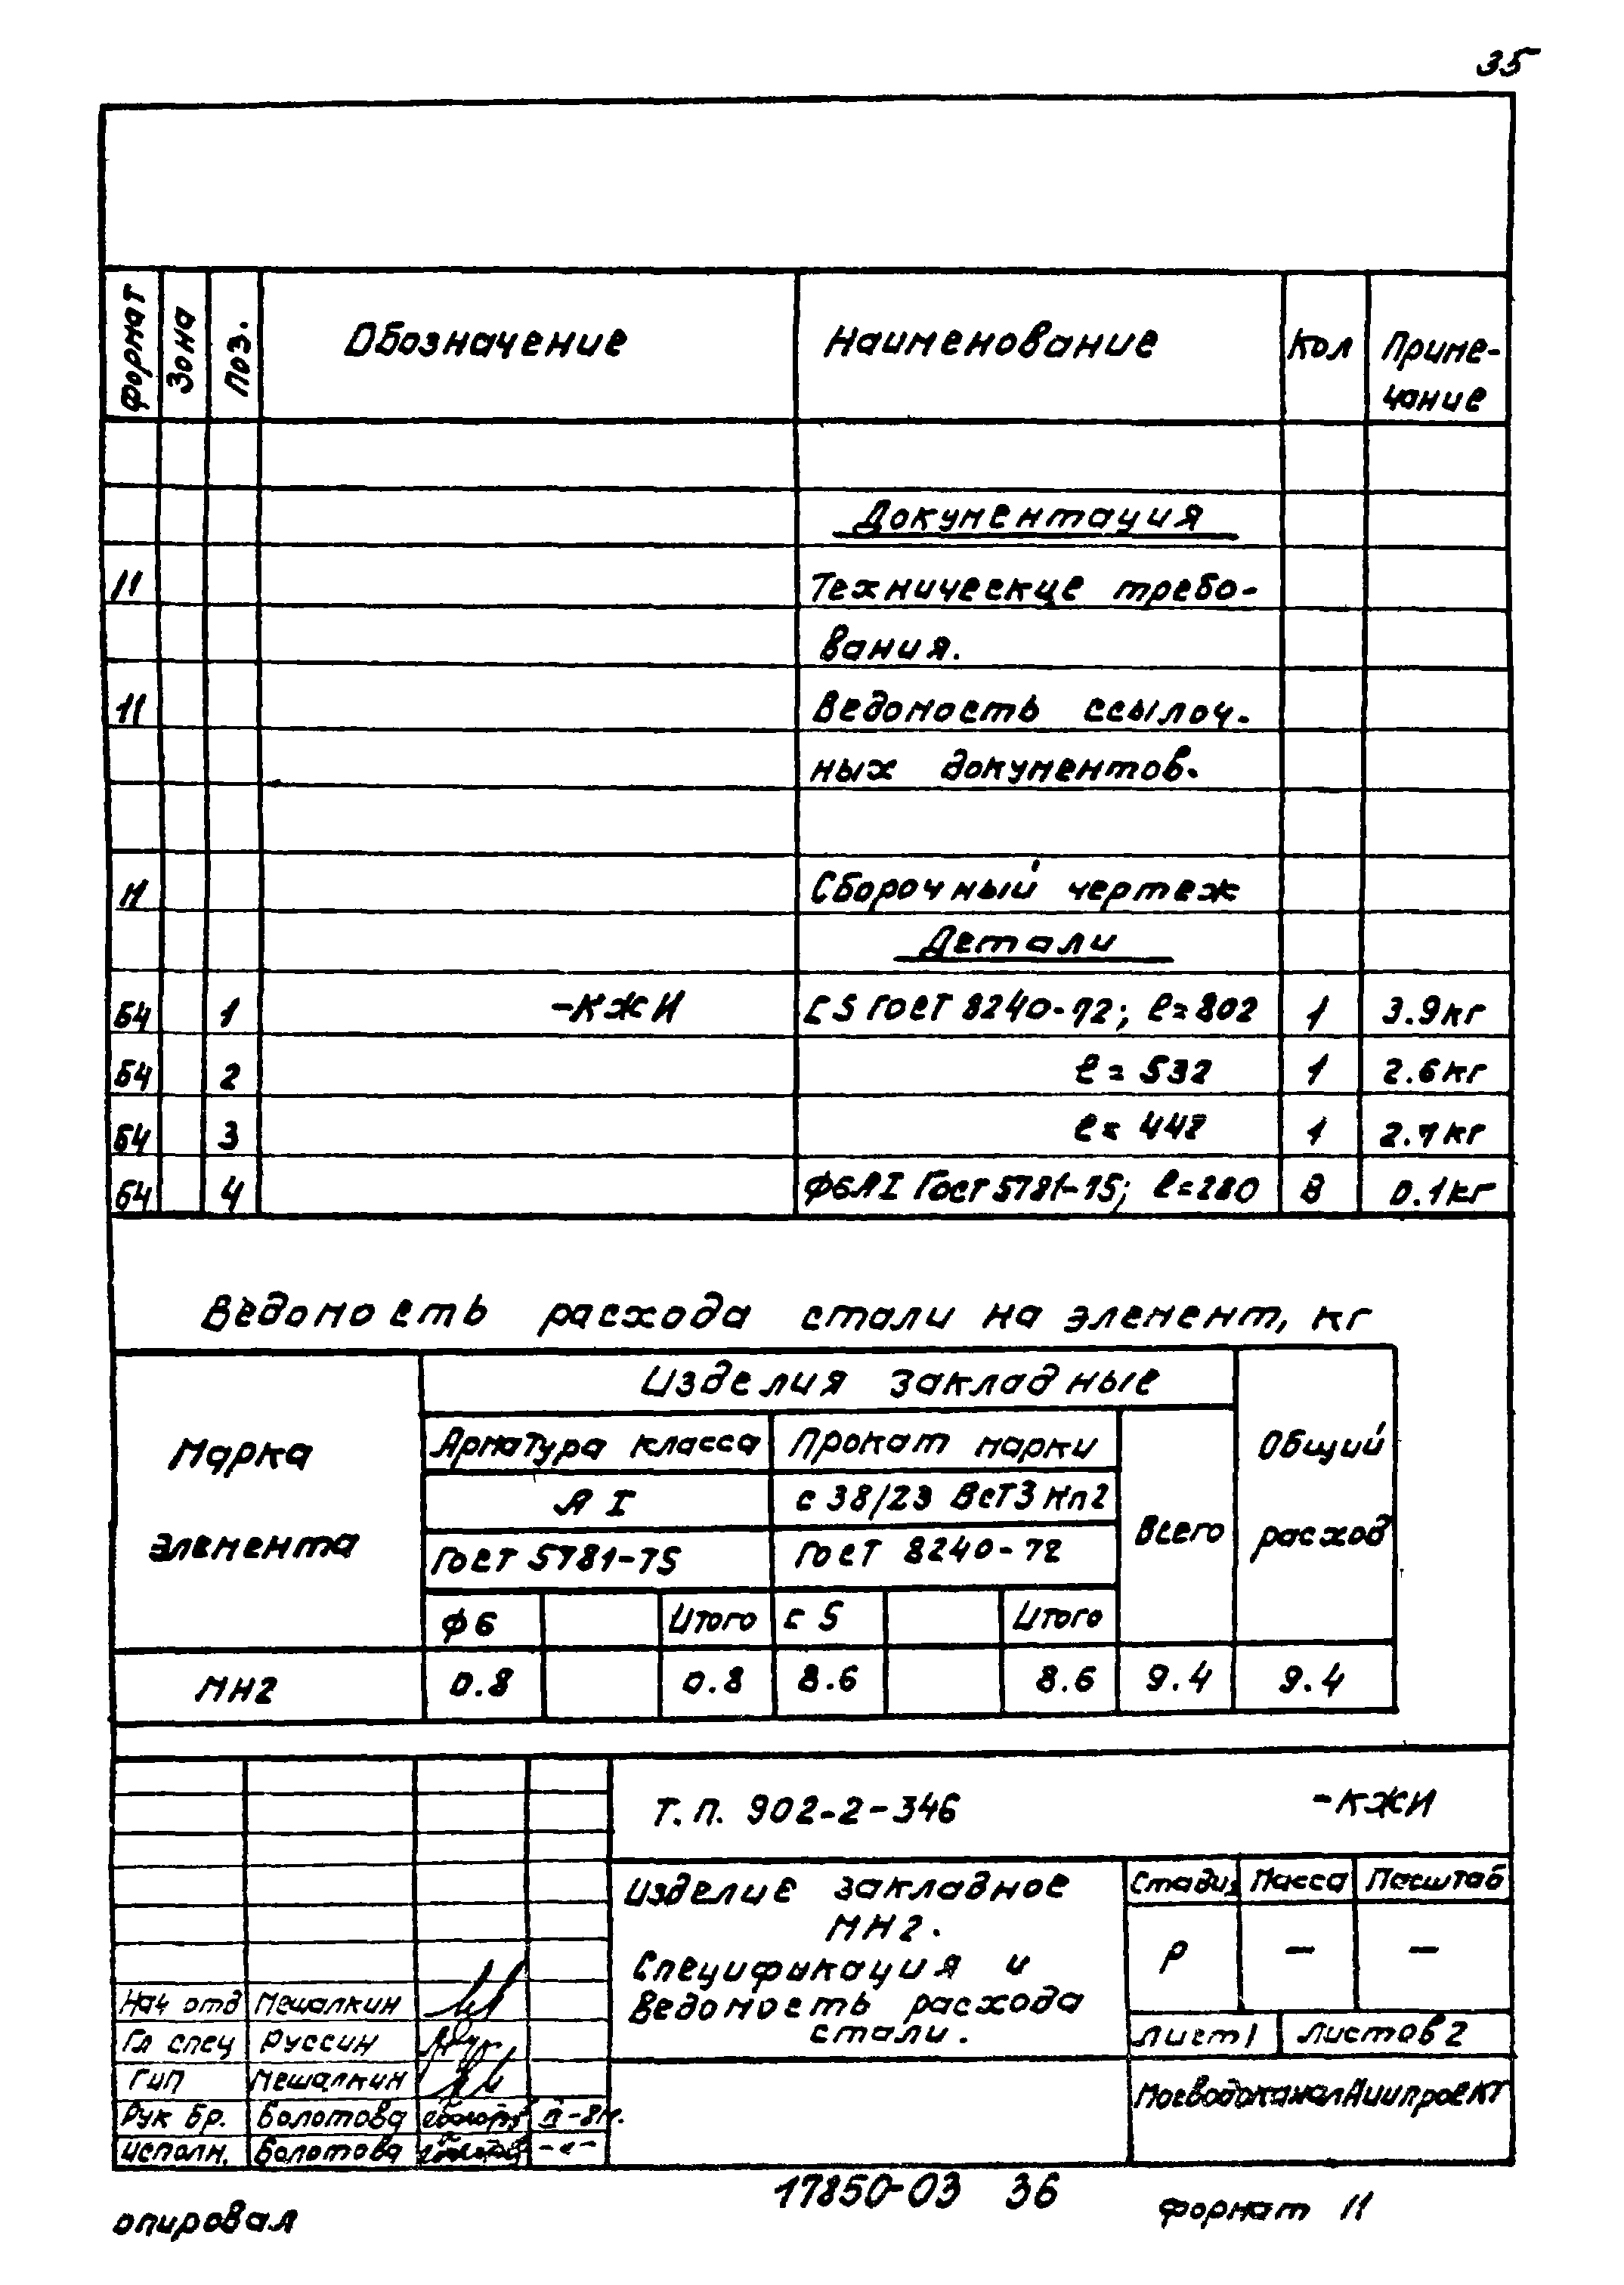 35
Формат Зона Поз. Обозначение Наименование Кол Приме-
чание
Документация
11 Технические требо-
вания.
11 Ведомость ссылоч-
ных документов.
11 Сборочный чертеж
Детали
БЧ 1 -КЖИ С 5 ГОСТ 8240-72; ℓ=802 1 3.9кг
БЧ 2 ℓ=532 1 2.6кг
БЧ 3 ℓ= 1 2.1кг
БЧ 4 ф6АI ГОСТ 5781-75; ℓ=280 8 0.1кг
Ведомость расхода стали на элемент, кг
Марка
элемента
Изделия закладные
Общий
расход
Арматура класса Прокат марки
Всего
А I с 38/23 ВСт3кп2
ГОСТ 5781-75 ГОСТ 8240-72
ф6 Итого С 5 Итого
МН2 0.8 0.8 8.6 8.6 9.4 9.4
Т.П. 902-2-346 -КЖИ
Изделие закладное
МН2.
Спецификация и
ведомость расхода
стали.
Стадия Масса Масштаб
Р — —
Лист 1 Листов 2
МосводоканалНИИпроект
Нач отд Мешалкин
Гл спец Руссин
ГИП Мешалкин
Рук бр. Болотова
Исполн. Болотова -"-
17850-03 36
опировал
Формат 11